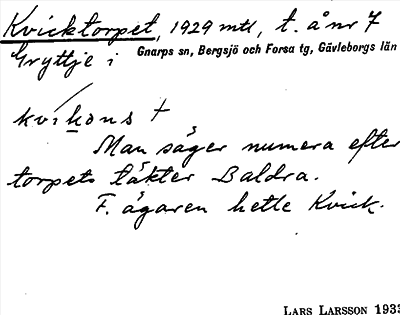 Kvicktorpet, 1929 mtl, t. å nr 7
Gryttje i Gnarps sn, Bergsjö och Forsa tg, Gävleborgs län
kvikons +
Man säger numera efter
torpets läkter Baldra.
F. ägaren hette Kvick.
LARS LARSSON 1933